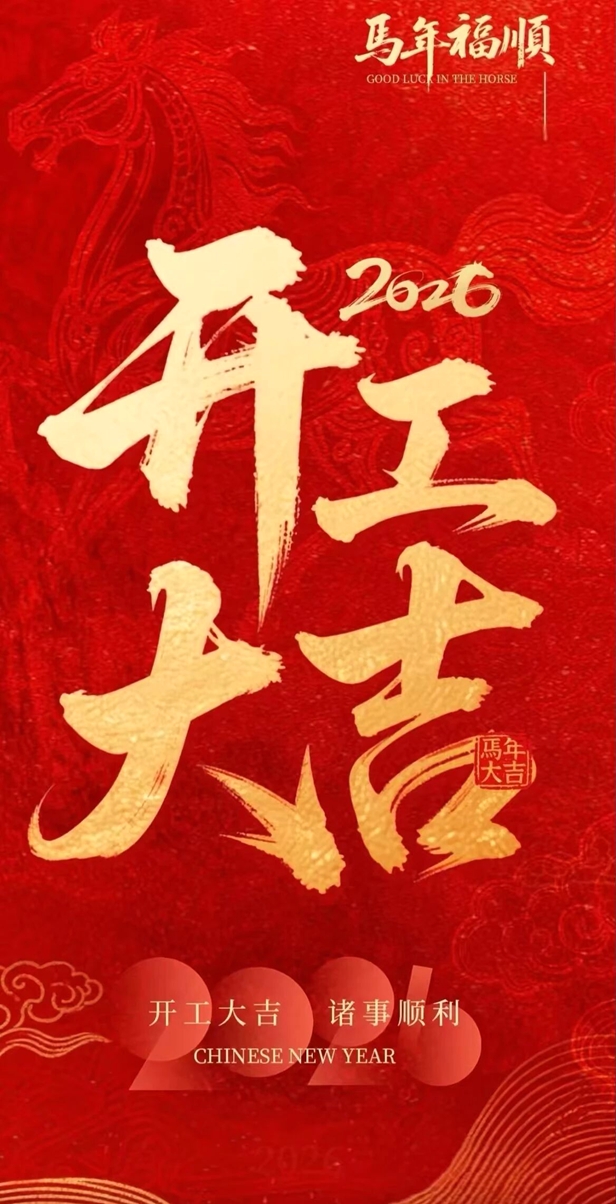 馬年福順
GOOD LUCK IN THE HORSE
2026
开工
大吉
馬年
大吉
2026
开工大吉 诸事顺利
CHINESE NEW YEAR
2026